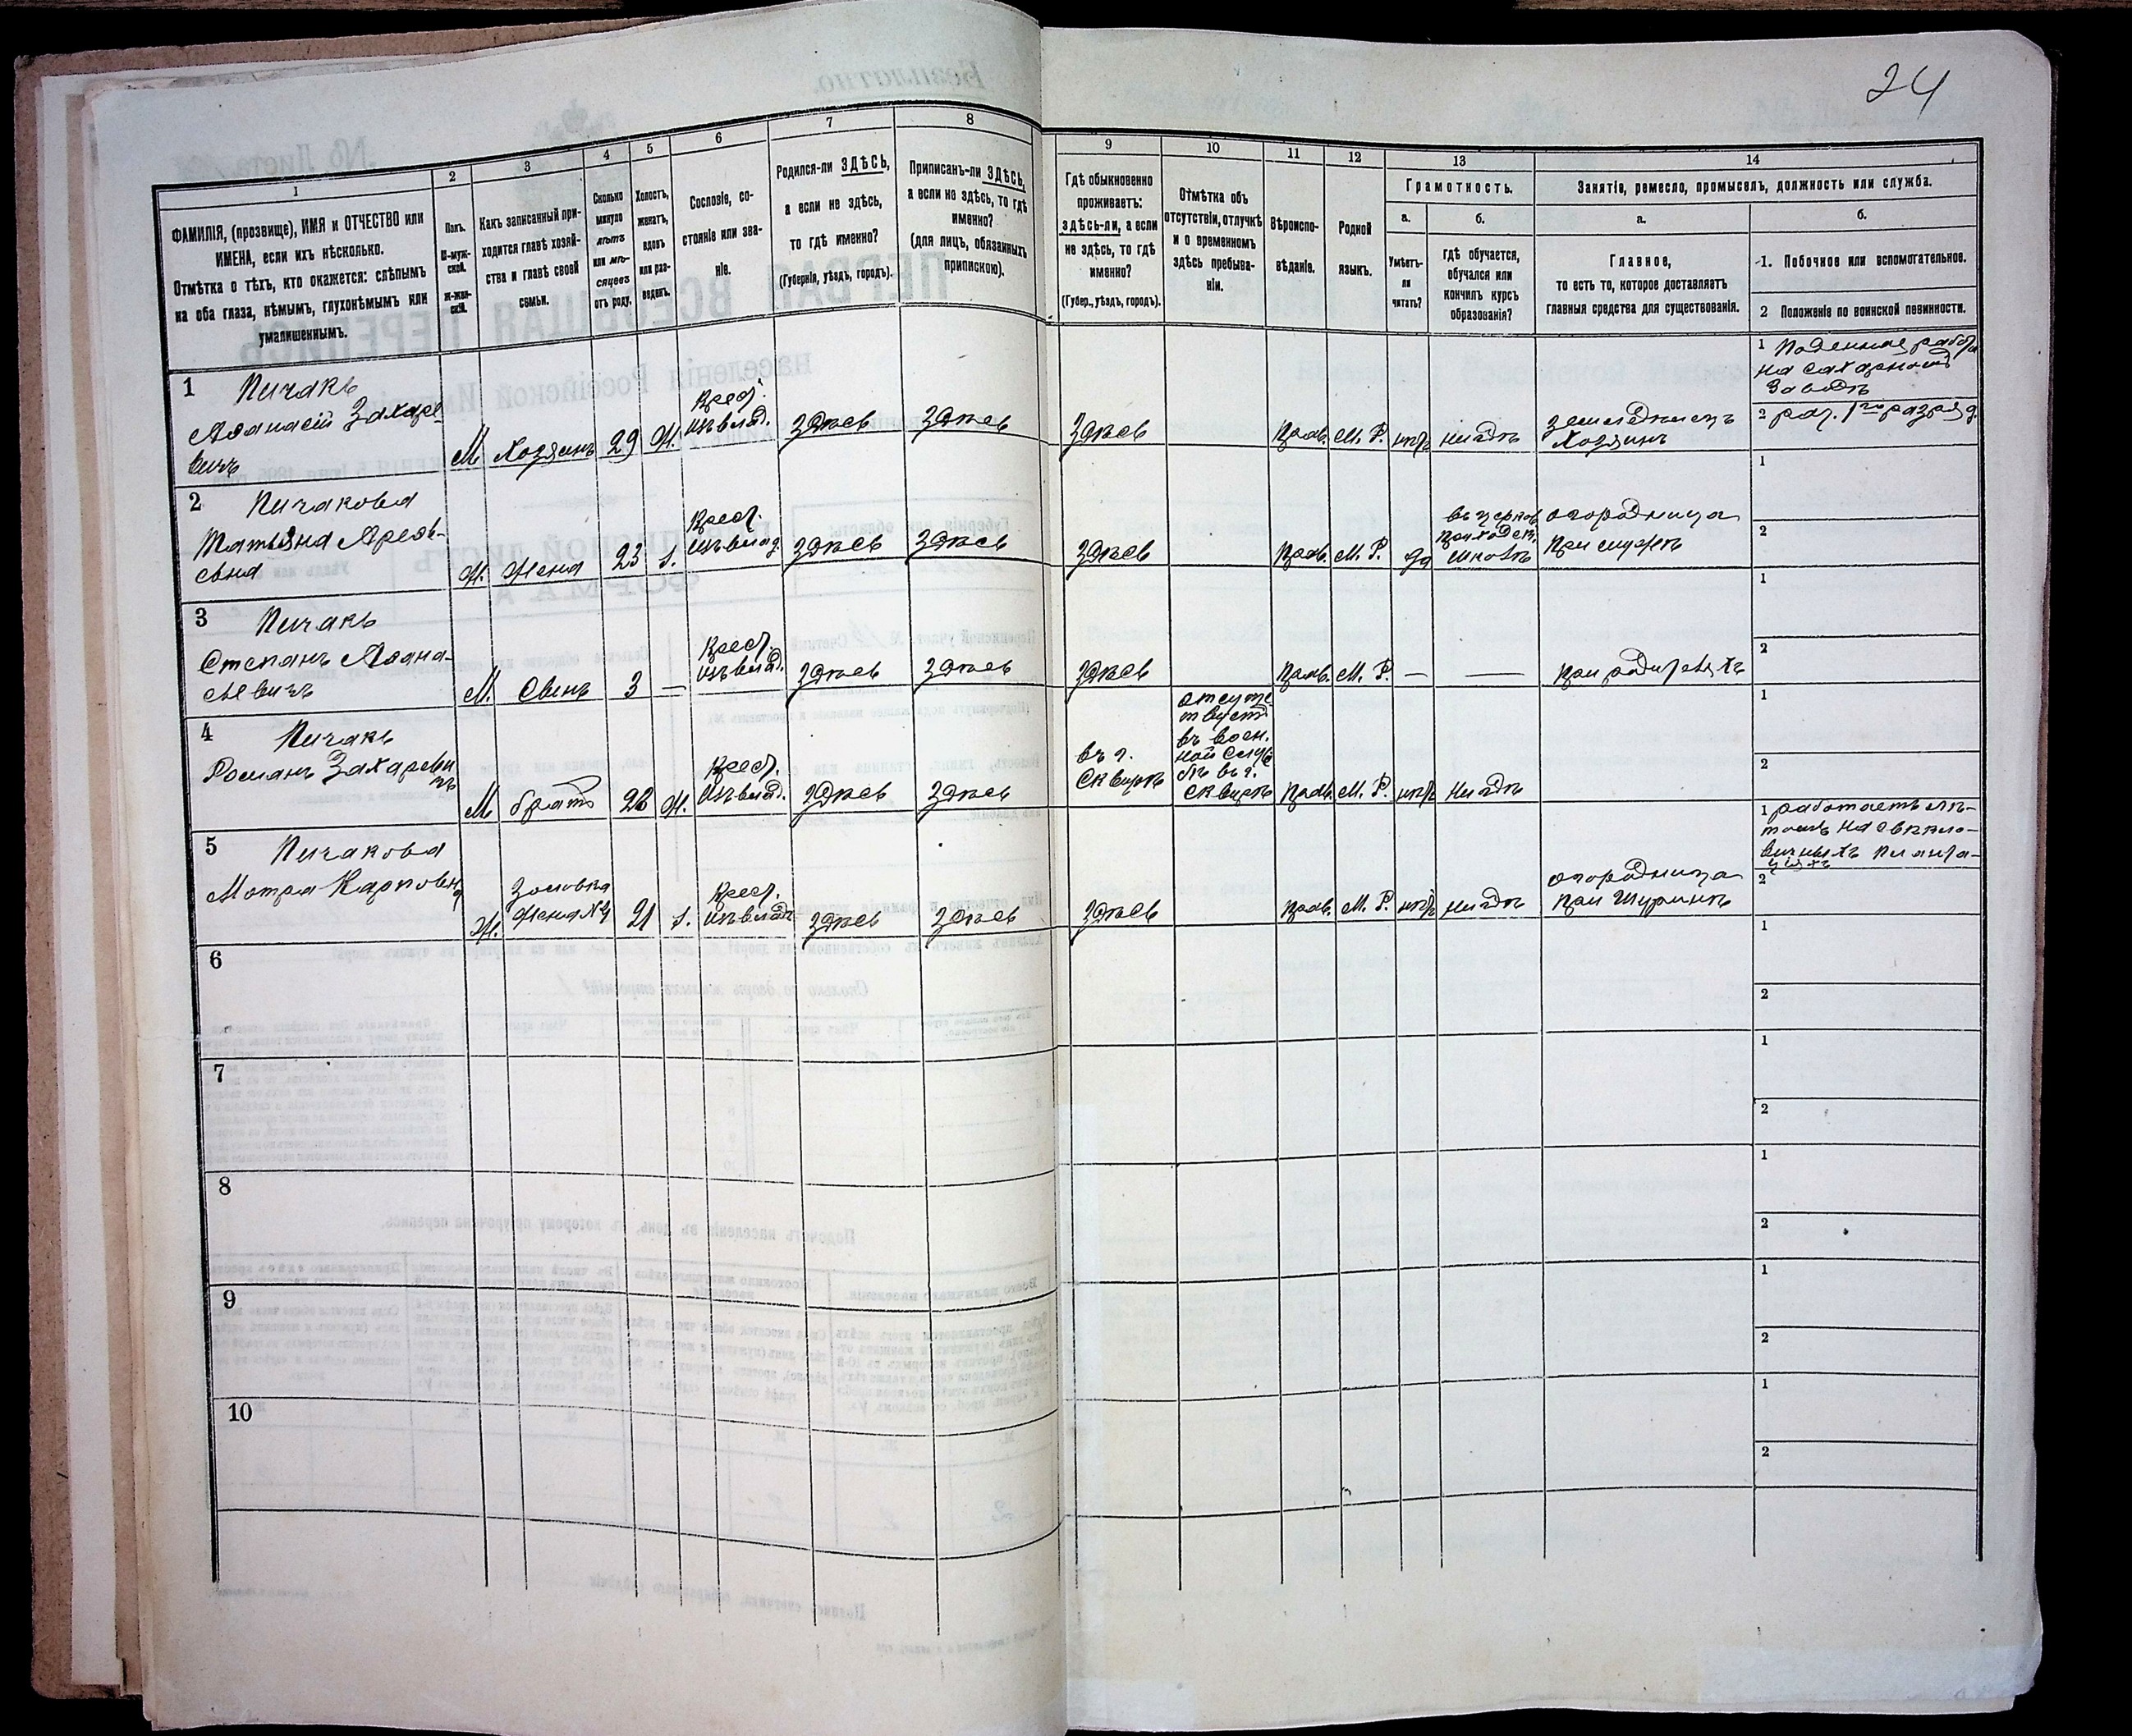 24
1
2
3
4
5
6
7
8
9
10
11
12
13
14
ФАМИЛІЯ, (прозвище), ИМЯ и ОТЧЕСТВО или
ИМЕНА, если ихъ нѣсколько.
Отмѣтка о тѣхъ, кто окажется: слѣпымъ
на оба глаза, нѣмымъ, глухонѣмымъ или
умалишеннымъ.
Полъ.
М-муж-
ской.
Ж-жен-
скій.
Какъ записанный при-
ходится главѣ хозяй-
ства и главѣ своей
семьи.
Сколько
минуло
лѣтъ
или мѣ-
сяцевъ
отъ роду.
Холостъ,
женатъ,
вдовъ
или раз-
веденъ.
Сословіе, со-
стояніе или зва-
ніе.
Родился-ли ЗДѢСЬ,
а если не здѣсь,
то гдѣ именно?
(Губернія, уѣздъ, городъ).
Приписанъ-ли ЗДѢСЬ,
а если не здѣсь, то гдѣ
именно?
(для лицъ, обязанныхъ
припискою).
Гдѣ обыкновенно
проживаетъ:
здѣсь-ли, а если
не здѣсь, то гдѣ
именно?
(Губер., уѣздъ, городъ).
Отмѣтка объ
отсутствіи, отлучкѣ
и о временномъ
здѣсь пребыва-
ніи.
Вѣроиспо-
вѣданіе.
Родной
языкъ.
Грамотность.
а.
Умѣетъ-
ли
читать?
б.
Гдѣ обучается,
обучался или
кончилъ курсъ
образованія?
Занятіе, ремесло, промыселъ, должность или служба.
а.
Главное,
то есть то, которое доставляетъ
главныя средства для существованія.
б.
1. Побочное или вспомогательное.
2 Положеніе по воинской повинности.
1 Пичакъ
Аѳанасій Захаре
вичъ
М
Хозяинъ
29
Ж.
Крест.
изъ влад.
Здѣсь
Здѣсь
Здѣсь
Прав.
М. Р.
нѣтъ
нигдѣ
Земледѣлецъ
Хозяинъ
1 Поденная работа
на сахарномъ
Заводѣ
2 рат. 1го разряд.
2 Пичакова
Татьяна
сьна
Ж.
Жена
23
З.
Крест.
изъ влад.
Здѣсь
Здѣсь
Здѣсь
Прав.
М. Р.
да
въ церков.
приходск.
школѣ
огородница
при мужѣ
1
2
3 Пичакъ
Степанъ Аѳана-
сьевичъ
М.
Сынъ
3
—
Крест.
изъ влад.
Здѣсь
Здѣсь
Здѣсь
Прав.
М. Р.
—
—
при родителяхъ
1
2
4 Пичакъ
Романъ Захареви
чъ
М
братъ
Ж.
Крест.
изъ влад.
Здѣсь
Здѣсь
въ г.
Сквирѣ
отсутс
твуетъ
въ воен.
ной служ
бѣ въ г.
Сквирѣ
Прав.
М. Р.
нѣтъ
нигдѣ
1
2
5 Пичакова
Мотра Карповна
Ж.
Золовка
Жена №4
21
З.
Крест.
изъ влад.
Здѣсь
Здѣсь
Здѣсь
Прав.
М. Р.
нѣтъ
нигдѣ
огородница
при Шуринѣ
1 работаетъ лѣ-
томъ на свекло-
вичныхъ планта-
ціяхъ
2
6
1
2
7
1
2
8
1
2
9
1
2
10
1
2